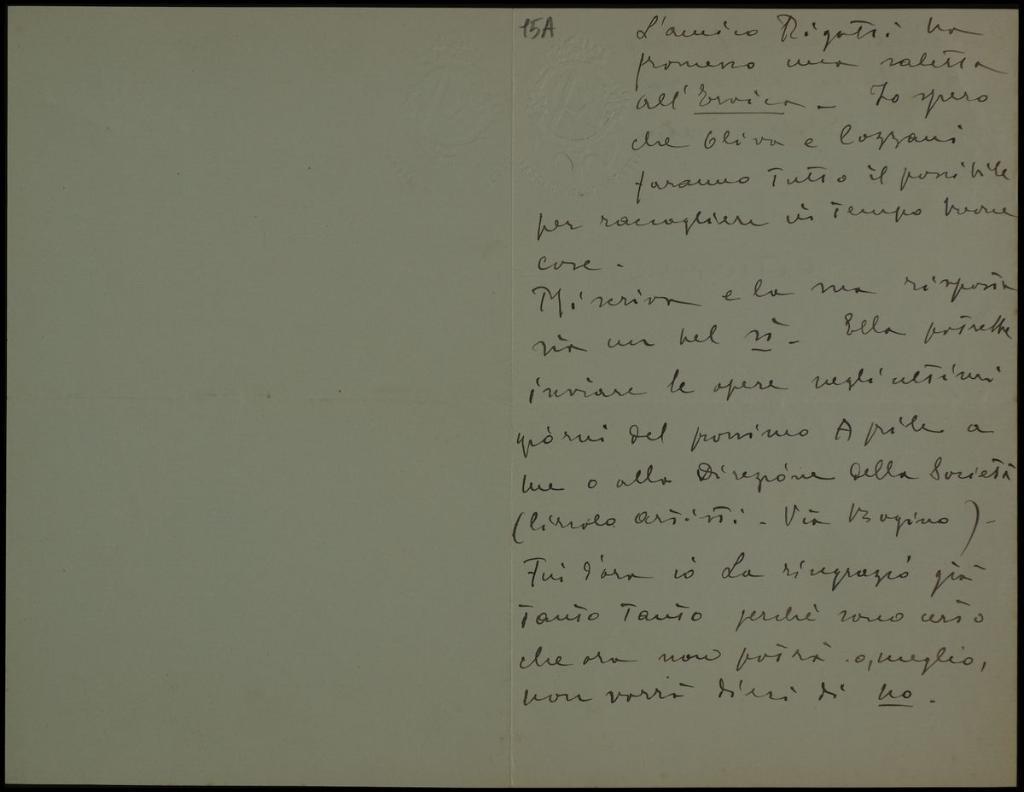 15A
L'amico Rigotti ha
promesso una saletta
all'Eroica - Io spero
che Oliva e Cozzani
faranno tutto il possibile
per raccogliere in tempo buone
cose -
Mi scriva e la sua risposta
sia un bel sì - Ella potrebbe
inviare le opere negli ultimi
giorni del prossimo Aprile a
me o alla Direzione della Società
(Circolo Artisti - Via Bogino) -
Fin d'ora io La ringrazio già
tanto tanto perché sono certo
che ora non potrà o, meglio,
non vorrà dirmi di no.